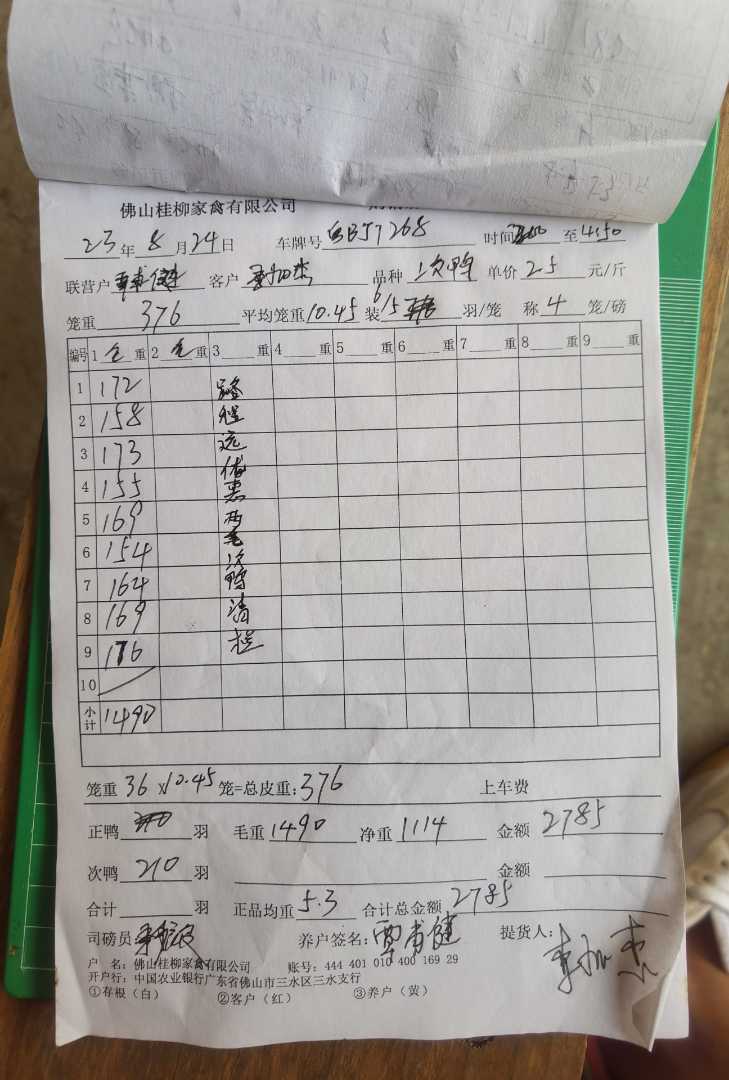 佛山桂柳家禽有限公司
23年8月24日 车牌号 时间 至4:50
联营户 客户 品种 次鸭 单价 25 元/斤
笼重 376 平均笼重 10.45 装 羽/笼 称 4 笼/磅
编号 1 毛 重 2 毛 重 3 重 4 重 5 重 6 重 7 重 8 重 9 重
1 172 路
2 158 程
3 173 远
4 155 优惠
5 169 两
6 154 毛次
7 164 鸭
8 169 清
9 176
10
小计 1490
笼重 36 x 10.45 笼=总皮重: 376 上车费
正鸭 羽 毛重 1490 净重 1114 金额 2785
次鸭 210 羽 金额
合计 羽 正品均重 5.3 合计总金额 2785
司磅员 养户签名: 提货人:
户 名: 佛山桂柳家禽有限公司 账号: 444 401 010 400 169 29
开户行: 中国农业银行广东省佛山市三水区三水支行
①存根（白） ②客户（红） ③养户（黄）